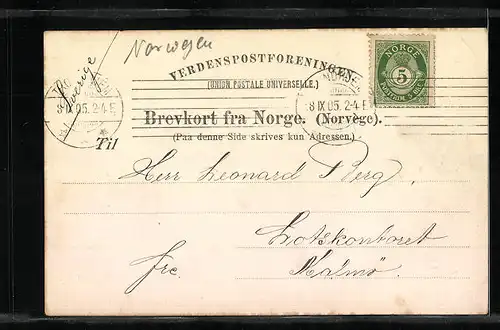 Norwegen
Sverige
VERDENSPOSTFORENINGEN.
(UNION POSTALE UNIVERSELLE.)
NORGE
5
8 IX 05. 2-4 E
8 IX 05. 2-4 F
Brevkort fra Norge. (Norvège).
(Paa denne Side skrives kun Adressen.)
Til
Herr Leonard Berg,
Lotskontoret
Malmö.